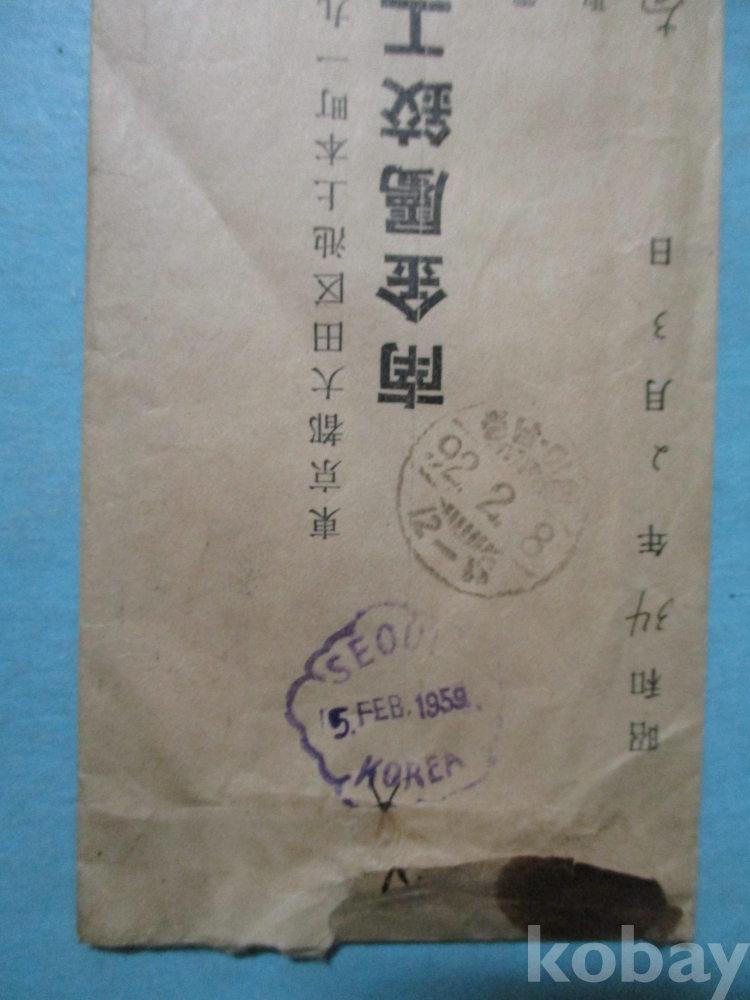 東京都大田区池上本町一九
南金属鉸工
昭和34年2月3日
92.2.8
SEOUL
5.FEB.1959.
KOREA
kobay